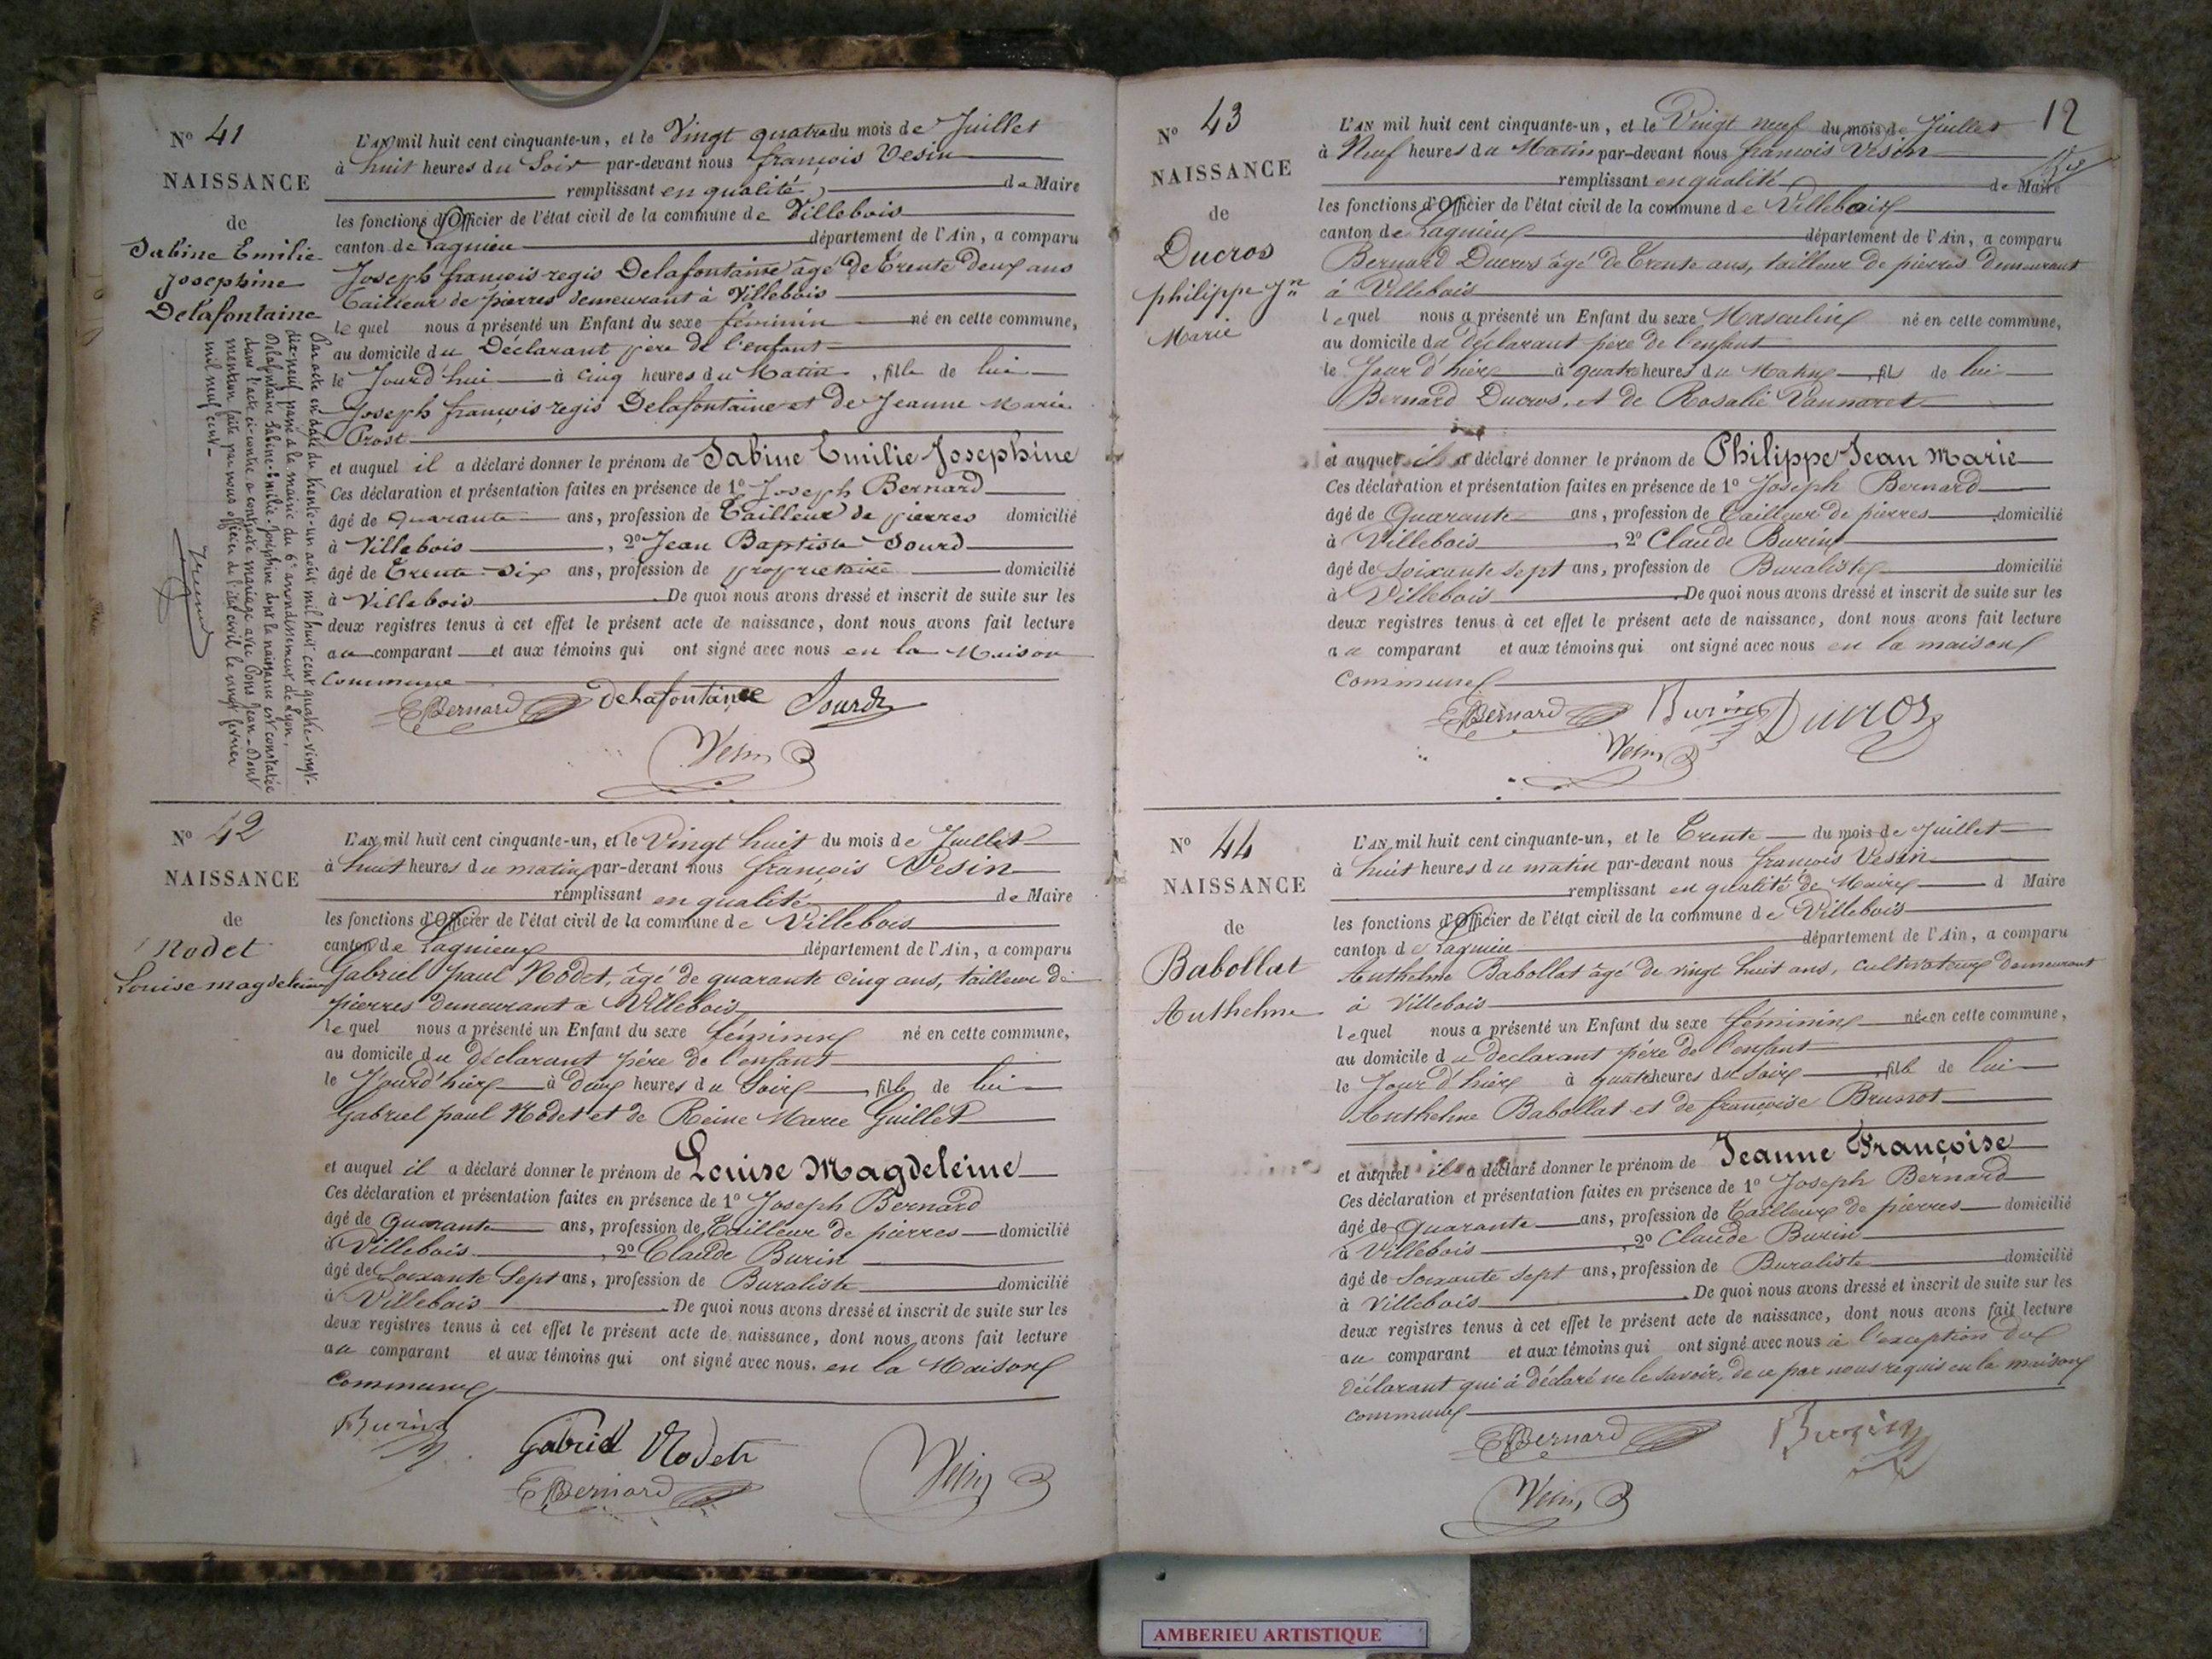 N° 41
NAISSANCE
de
Sabine Emilie
Josephine
Delafontaine
Par acte en date du trente-un août mil huit cent quatre-vingt-
dix-neuf passé à la mairie du 6e arrondissement de Lyon,
Delafontaine Sabine-Emilie-Joséphine dont la naissance est constatée
dans l'acte ci-contre a contracté mariage avec Pons Jean. Dont
mention faite par nous officier de l'état civil le vingt février
mil neuf cent.
L'AN mil huit cent cinquante-un, et le Vingt quatre du mois de Juillet
à huit heures du Soir par-devant nous françois Vesin
remplissant en qualité de Maire
les fonctions d'Officier de l'état civil de la commune de Villebois
canton de Lagnieu département de l'Ain, a comparu
Joseph françois-regis Delafontaine âgé de trente deux ans
Tailleur de pierres demeurant à Villebois
lequel nous a présenté un Enfant du sexe féminin né en cette commune,
au domicile du Déclarant père de l'enfant
le Jourd'hui à cinq heures du Matin, fille de lui
Joseph françois regis Delafontaine et de Jeanne Marie
Prost
et auquel il a déclaré donner le prénom de Sabine Emilie Josephine
Ces déclaration et présentation faites en présence de 1° Joseph Bernard
âgé de Quarante ans, profession de Tailleur de pierres domicilié
à Villebois, 2° Jean Baptiste Sourd
âgé de Trente-Six ans, profession de proprietaire domicilié
à Villebois. De quoi nous avons dressé et inscrit de suite sur les
deux registres tenus à cet effet le présent acte de naissance, dont nous avons fait lecture
au comparant et aux témoins qui ont signé avec nous en la Maison
commune
Bernard Delafontaine Sourd
Vesin
N° 42
NAISSANCE
de
Nodet
Louise magdeleine
L'AN mil huit cent cinquante-un, et le Vingt huit du mois de Juillet
à huit heures du matin par-devant nous françois Vesin
remplissant en qualité de Maire
les fonctions d'Officier de l'état civil de la commune de Villebois
canton de Lagnieu département de l'Ain, a comparu
Gabriel paul Nodet, âgé de quarante cinq ans, tailleur de
pierres demeurant a Villebois
lequel nous a présenté un Enfant du sexe féminin né en cette commune,
au domicile du déclarant père de l'enfant
le Jourd'hier à deux heures du Soir, fille de lui
Gabriel paul Nodet et de Reine Marie Guillet
et auquel il a déclaré donner le prénom de Louise Magdeleine
Ces déclaration et présentation faites en présence de 1° Joseph Bernard
âgé de Quarante ans, profession de Tailleur de pierres domicilié
à Villebois, 2° Claude Burin
âgé de Soixante Sept ans, profession de Buraliste domicilié
à Villebois. De quoi nous avons dressé et inscrit de suite sur les
deux registres tenus à cet effet le présent acte de naissance, dont nous avons fait lecture
au comparant et aux témoins qui ont signé avec nous. en la Maison
commune
Burin Gabriel Nodet
Bernard Vesin
12
N° 43
NAISSANCE
de
Ducros
philippe Jn
Marie
L'AN mil huit cent cinquante-un, et le Vingt neuf du mois de Juillet
à Neuf heures du Matin par-devant nous françois Vesin
remplissant en qualité de Maire
les fonctions d'Officier de l'état civil de la commune de Villebois
canton de Lagnieu département de l'Ain, a comparu
Bernard Ducros âgé de Trente ans, tailleur de pierres demeurant
à Villebois
lequel nous a présenté un Enfant du sexe Masculin né en cette commune,
au domicile du déclarant père de l'enfant
le Jour d'hier à quatre heures du Matin, fils de lui
Bernard Ducros, et de Rosalie Vannaret
et auquel il a déclaré donner le prénom de Philippe Jean Marie
Ces déclaration et présentation faites en présence de 1° Joseph Bernard
âgé de Quarante ans, profession de Tailleur de pierres domicilié
à Villebois, 2° Claude Burin
âgé de Soixante sept ans, profession de Buraliste domicilié
à Villebois. De quoi nous avons dressé et inscrit de suite sur les
deux registres tenus à cet effet le présent acte de naissance, dont nous avons fait lecture
au comparant et aux témoins qui ont signé avec nous en la maison
commune
Bernard Burin Ducros
Vesin
N° 44
NAISSANCE
de
Babollat
Anthelme
L'AN mil huit cent cinquante-un, et le Trente du mois de Juillet
à huit heures du matin par-devant nous françois Vesin
remplissant en qualité de Maire d Maire
les fonctions d'Officier de l'état civil de la commune de Villebois
canton de Lagnieu département de l'Ain, a comparu
Anthelme Babollat âgé de vingt huit ans, cultivateur demeurant
à Villebois
lequel nous a présenté un Enfant du sexe féminin né en cette commune,
au domicile du declarant père de l'enfant
le Jour d'hier à quatre heures du soir, fille de lui
Anthelme Babollat et de françoise Brunot
et auquel il a déclaré donner le prénom de Jeanne Françoise
Ces déclaration et présentation faites en présence de 1° Joseph Bernard
âgé de Quarante ans, profession de Tailleur de pierres domicilié
à Villebois, 2° Claude Burin
âgé de Soixante sept ans, profession de Buraliste domicilié
à Villebois. De quoi nous avons dressé et inscrit de suite sur les
deux registres tenus à cet effet le présent acte de naissance, dont nous avons fait lecture
au comparant et aux témoins qui ont signé avec nous à l'exception du
déclarant qui à déclaré ne le savoir, de ce par nous requis en la maison
commune
Bernard Burin
Vesin
AMBERIEU ARTISTIQUE